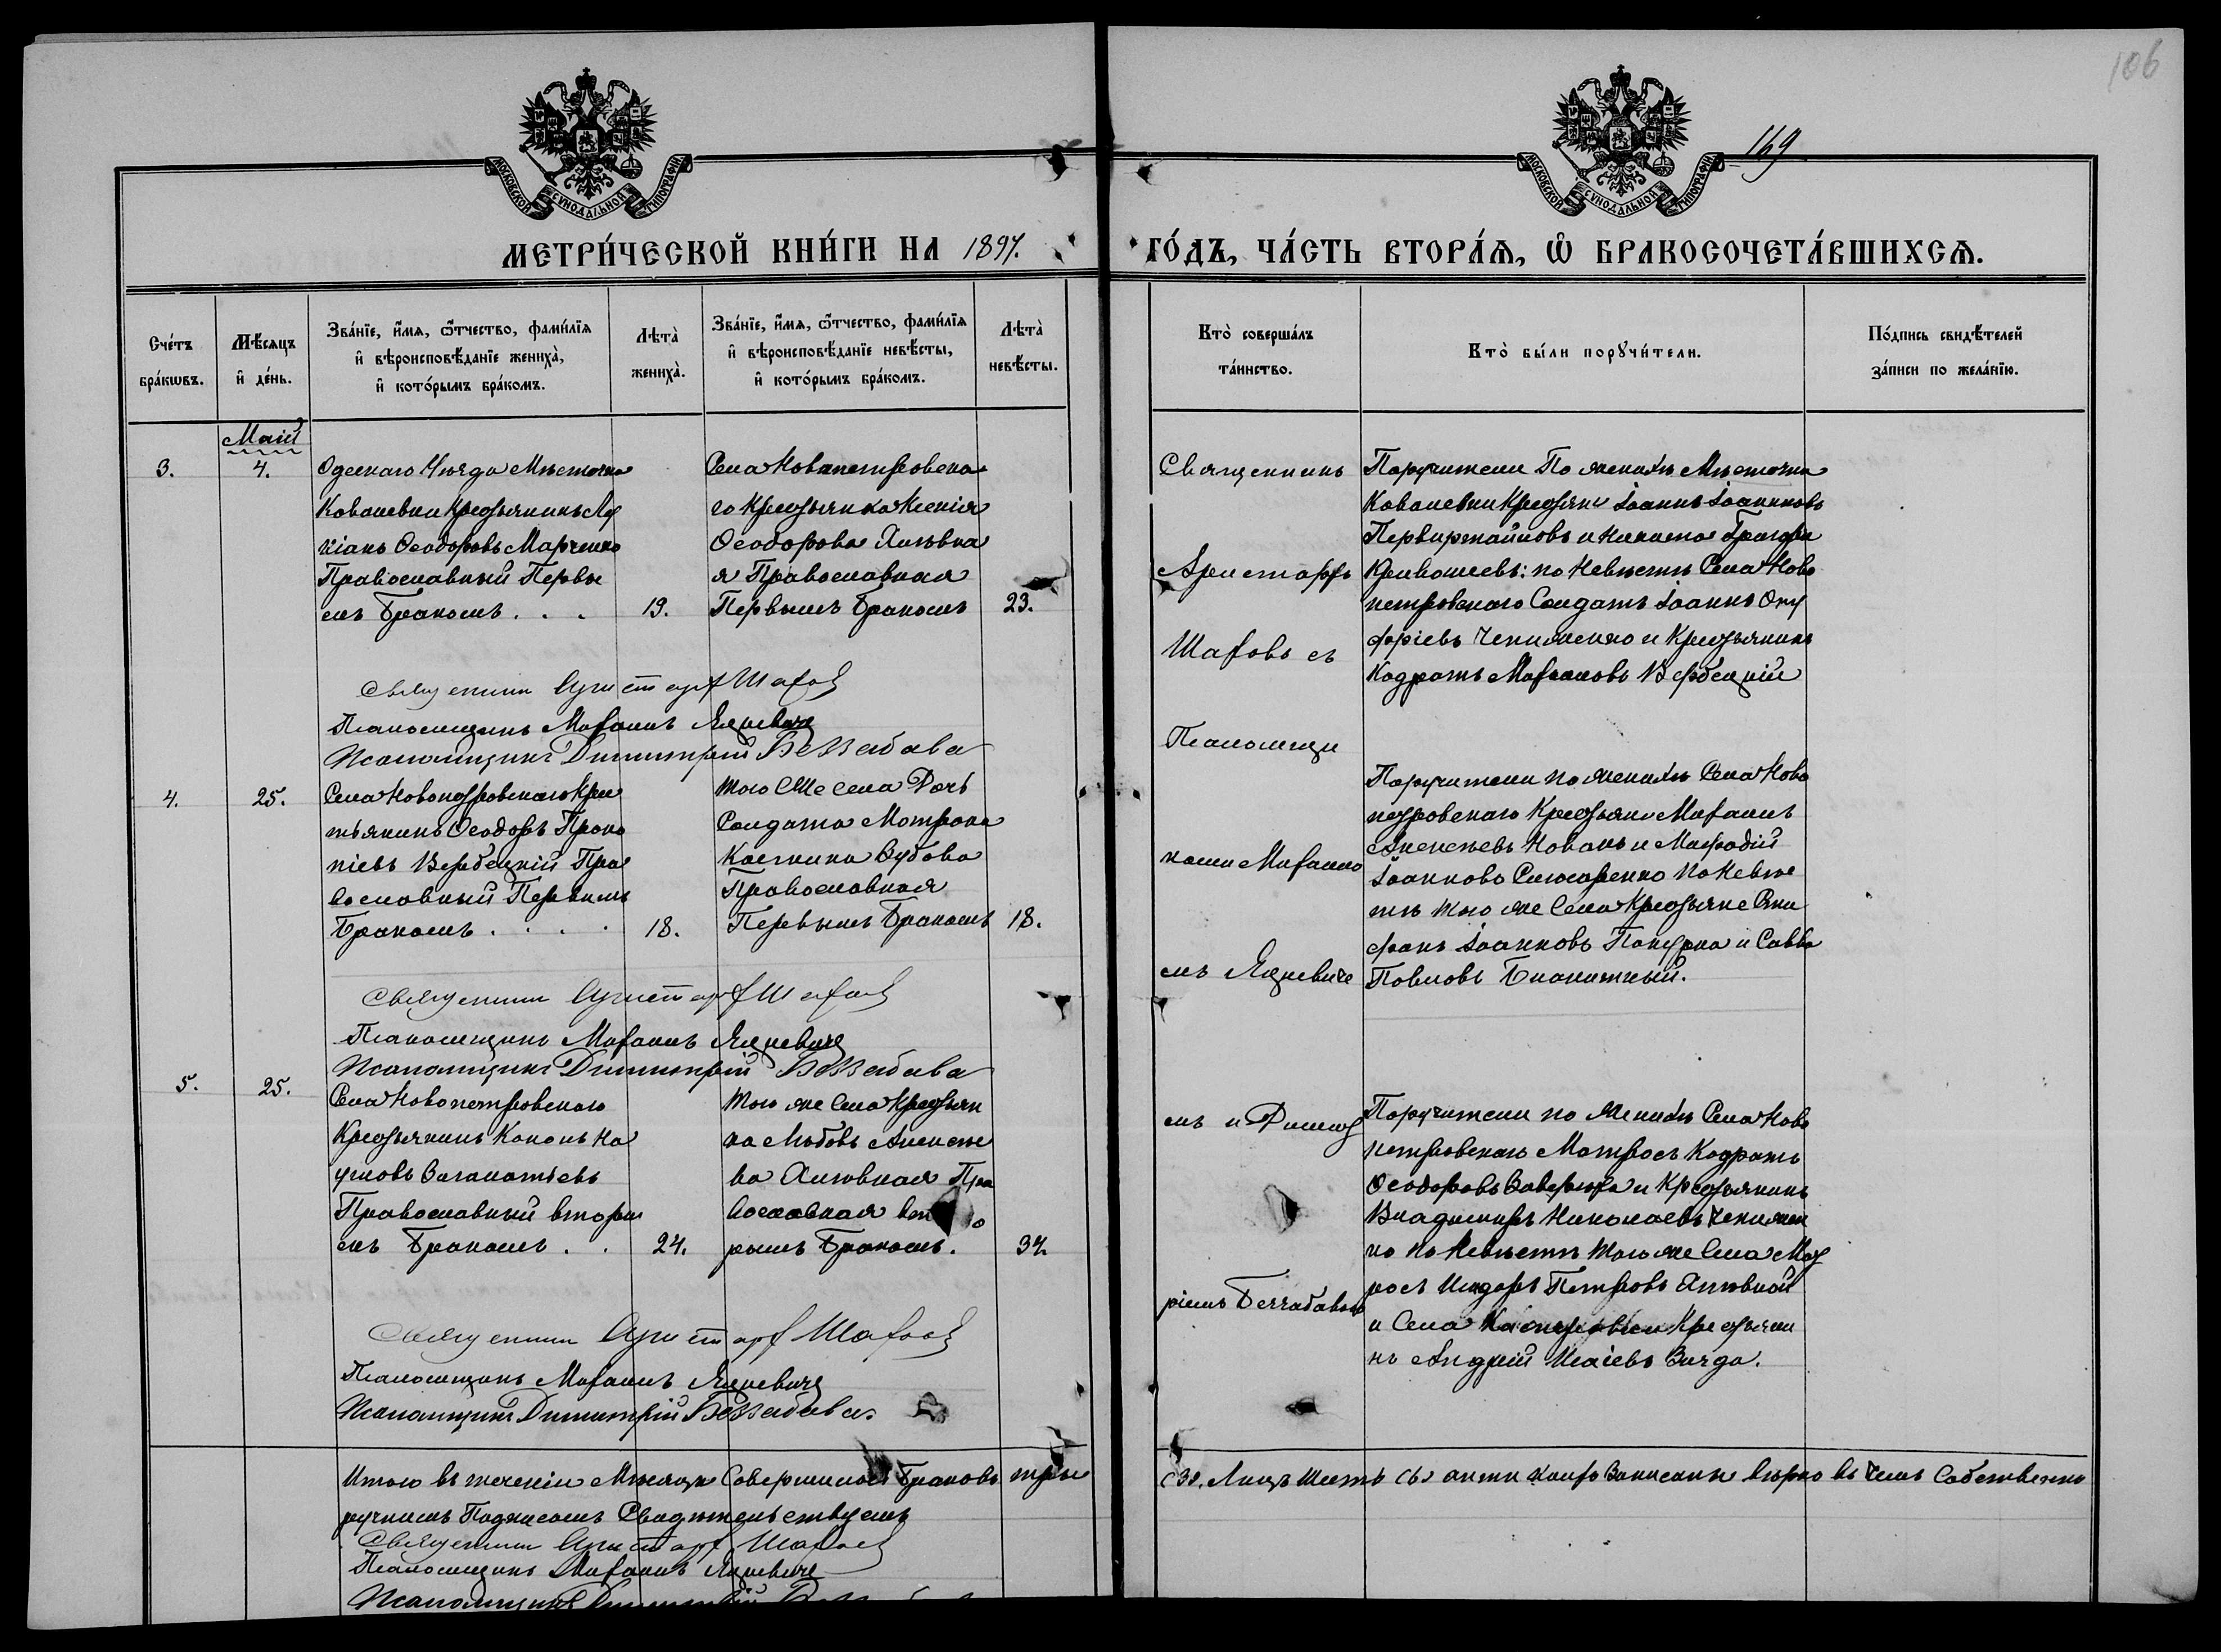 106
169
МОСКОВСКОЙ СѴНОДАЛЬНОЙ ТИПОГРАФІИ
МОСКОВСКОЙ СѴНОДАЛЬНОЙ ТИПОГРАФІИ
МЕТРИ́ЧЕСКОЙ КНИ́ГИ НА 1897.
ГО́ДЪ, ЧА́СТЬ ВТОРА́Ѧ, Ѡ҆ БРАКОСОЧЕТА́ВШИХСѦ.
Сче́тъ бра́кωвъ.
Мѣ́сяцъ и҆ де́нь.
Зва́нїе, и҆́мѧ, ѻ҆́тчество, фами́лїѧ
и҆ вѣроисповѣ́данїе жениха̀,
и҆ кото́рымъ бра́комъ.
Лѣта̀ жениха̀.
Зва́нїе, и҆́мѧ, ѻ҆́тчество, фами́лїѧ
и҆ вѣроисповѣ́данїе невѣ́сты,
и҆ кото́рымъ бра́комъ.
Лѣта̀ невѣ́сты.
Кто̀ соверша́лъ
та́инство.
Кто̀ бы́ли порꙋчи́тели.
По́дпись свидѣ́телей
за́писи по жела́нїю.
Май
3.
4.
Одескаго Уѣзда Мѣстечка
Ковалевки Крестьянинъ Лу
кіанъ Ѳеодоровъ Марченко
Православный Первы
мъ Бракомъ . . .
19.
Села Новопетровска
го Крестьянка Ксенія
Ѳеодорова Хлѣвна
я Православная
Первымъ Бракомъ
23.
Священникъ
Аристарфъ
Шафовъ съ
Псаломщи
ками Михаило
мъ Яцкевиче
мъ и Димит
ріемъ Беззабавою
Поручители По женихѣ Мѣстечка
Ковалевки Крестьяне Іоаннъ Іоанновъ
и Никита Григорі
Кривошеевъ: по Невѣстѣ Села Ново
петровскаго Солдатъ Іоаннъ Ону
фріевъ Чекименко и Крестьянинъ
Кодратъ Вербецкій
Священникъ Аристарф Шафов
Псаломщикъ Михаилъ Яцкевичъ
Псаломщикъ Димитрій Беззабава
4.
25.
Села Новопетровскаго Крес
тьянинъ Ѳеодоръ Проко
піевъ Вербецкій Пра
вославный Первымъ
Бракомъ . . . .
18.
Того Же Села Дочь
Солдата Мотрона
Зубова
Православная
Первымъ Бракомъ
18.
Поручители по женихѣ Села Ново
петровскаго Крестьяне Михаилъ
Алексѣевъ Коваль и Мефодій
Іоанновъ Слюсаренко по Невѣс
тѣ того же Села Крестьяне
фанъ Іоанновъ и Савва
Павловъ
Священникъ Аристарф Шафов
Псаломщикъ Михаилъ Яцкевичъ
Псаломщикъ Димитрій Беззабава
5.
25.
Села Новопетровскаго
Крестьянинъ Кононъ На
умовъ
Православный вторы
мъ Бракомъ . .
24.
Того же Села Крестьян
ка Любовь Алексѣе
ва Хлѣвная Пра
вославная вто
рымъ Бракомъ.
34.
Поручители по Женихѣ Села Ново
петровскаго Матросъ Кодратъ
Ѳеодоровъ Заверюха и Крестьянинъ
Владимиръ Николаевъ Чекимен
ко по Невѣстѣ того же Села Мат
росъ Исидоръ Петровъ Хлѣвной
и Села Крестьяни
нъ Андрей Исаіевъ
Священникъ Аристарф Шафов
Псаломщикъ Михаилъ Яцкевичъ
Псаломщикъ Димитрій Беззабава.
Итого въ теченіи Мѣсяца Совершилось Браковъ три
(3). Лицъ Шесть (6) Записаны вѣрно въ Чемъ Собственно
ручнымъ Подписомъ Свидѣтельствуемъ
Священникъ Аристарф Шафов
Псаломщикъ Михаилъ Яцкевичъ
Псаломщикъ Димитрій